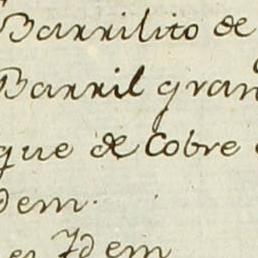 Barrilito de
Barril gran
que de Cobre
dem.
Idem